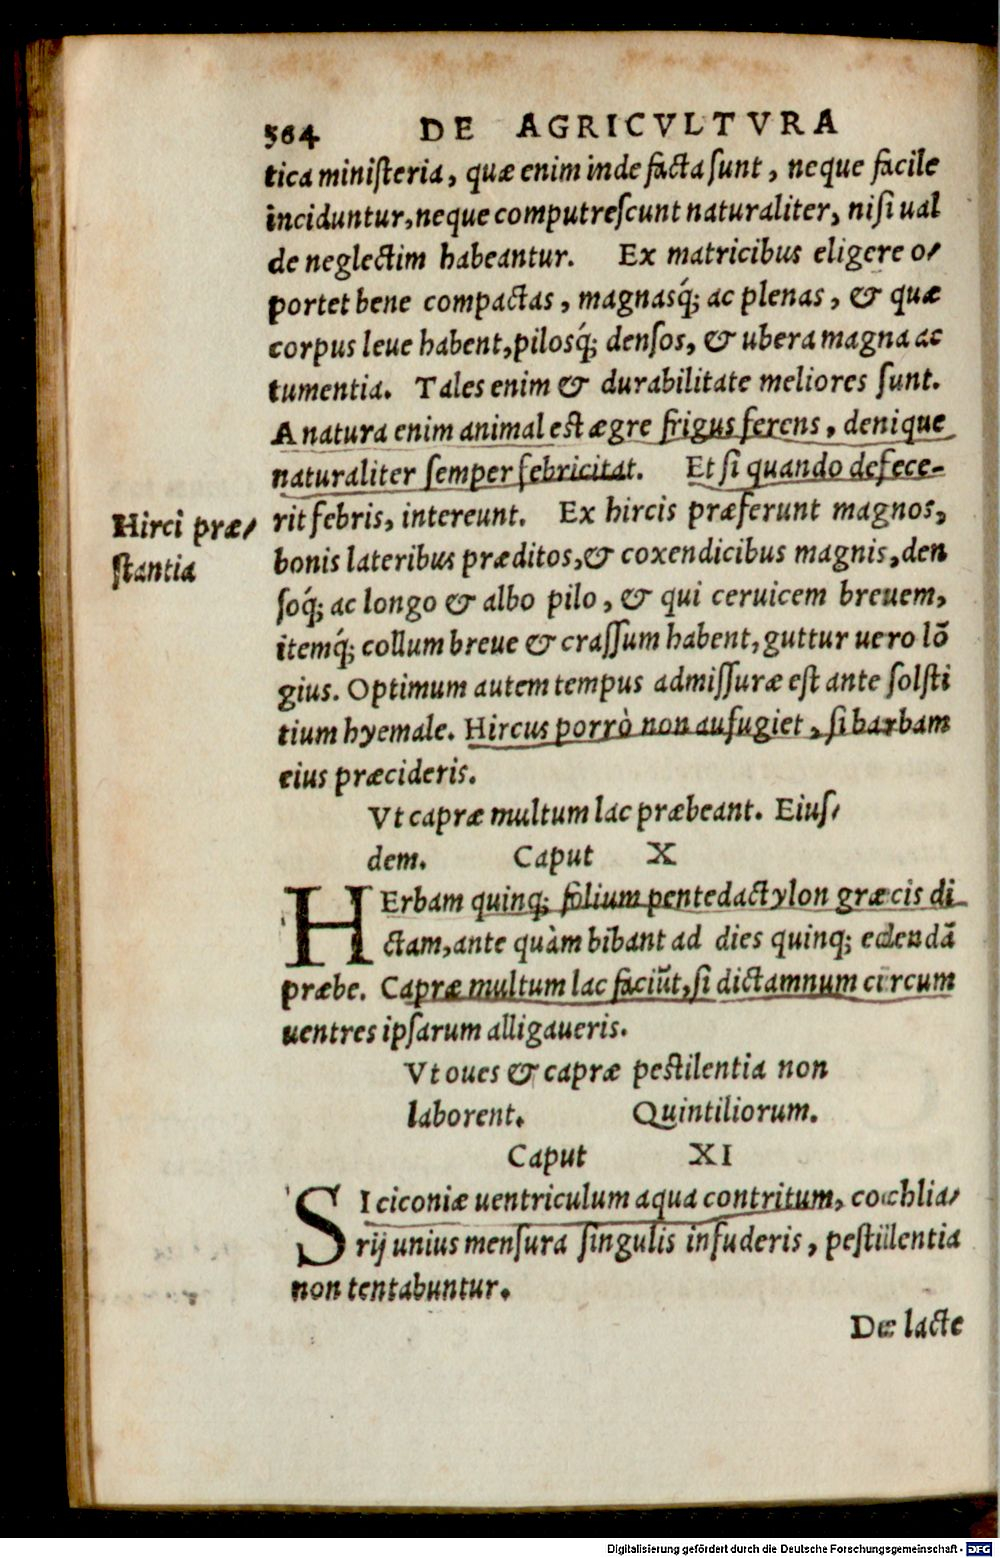 564 DE AGRICVLTVRA
tica ministeria, quæ enim inde facta sunt, neque facile
inciduntur, neque computrescunt naturaliter, nisi ual
de neglectim habeantur. Ex matricibus eligere o/
portet bene compactas, magnasq́; ac plenas, & quæ
corpus leue habent, pilosq́; densos, & ubera magna ac
tumentia. Tales enim & durabilitate meliores sunt.
A natura enim animal est ægre frigus ferens, denique
naturaliter semper febricitat. Et si quando defece-
rit febris, intereunt. Ex hircis præferunt magnos,
Hirci præ/
stantia
bonis lateribus præditos, & coxendicibus magnis, den
soq́; ac longo & albo pilo, & qui ceruicem breuem,
itemq́; collum breue & crassum habent, guttur uero lō
gius. Optimum autem tempus admissuræ est ante solsti
tium hyemale. Hircus porrò non aufugiet, si barbam
eius præcideris.
Vt capræ multum lac præbeant. Eius/
dem. Caput X
HErbam quinq; folium pentedactylon græcis di
ctam, ante quàm bibant ad dies quinq; edendā
præbe. Capræ multum lac faciūt, si dictamnum circum
uentres ipsarum alligaueris.
Vt oues & capræ pestilentia non
laborent. Quintiliorum.
Caput XI
SI ciconiæ uentriculum aqua contritum, cochlia/
rij unius mensura singulis infuderis, pestilentia
non tentabuntur.
De lacte
Digitalisierung gefördert durch die Deutsche Forschungsgemeinschaft - DFG